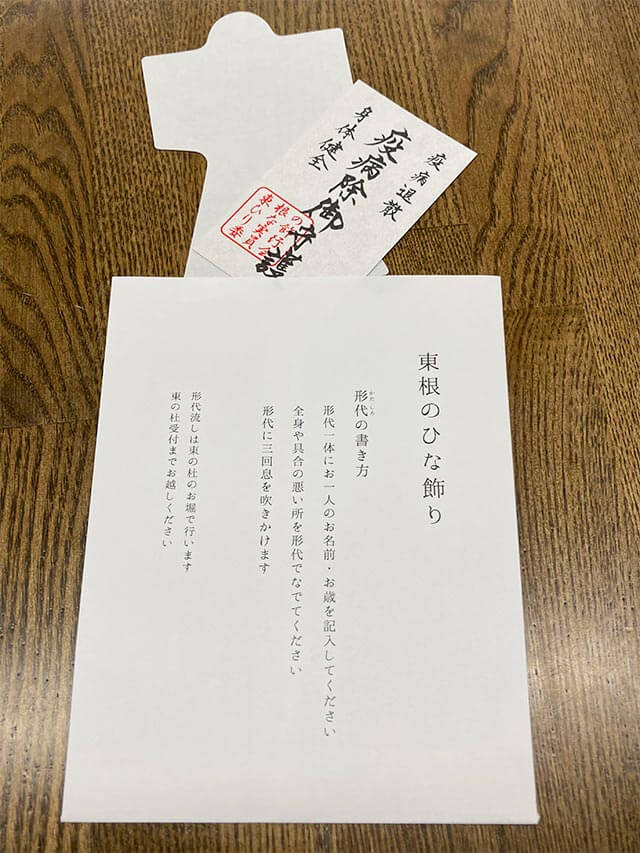 疫病退散
疫病除御守護
身体健全
東根の
ひな飾り
実行
委員会
東根のひな飾り
かたしろ
形代の書き方
形代一体にお一人のお名前・お歳を記入してください
全身や具合の悪い所を形代でなでてください
形代に三回息を吹きかけます
形代流しは東の杜のお堀で行います
東の杜受付までお越しください